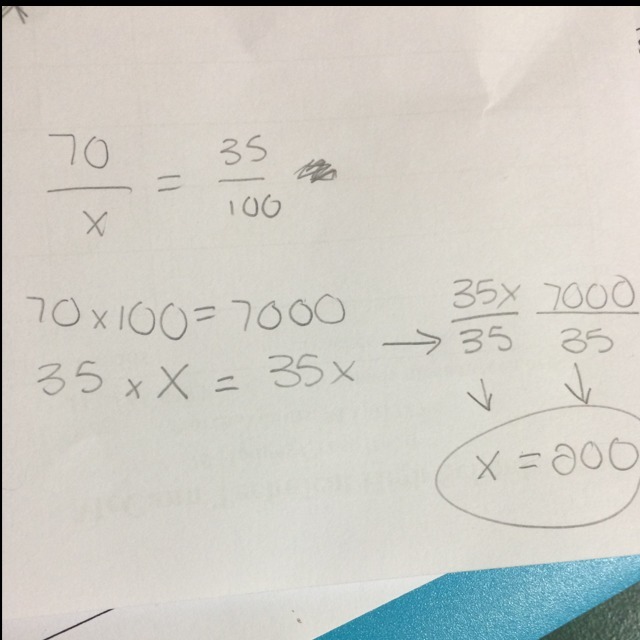 70/x = 35/100
70 x 100 = 7000
35 x X = 35x
→ 35x/35 7000/35
↓ ↓
x = 200